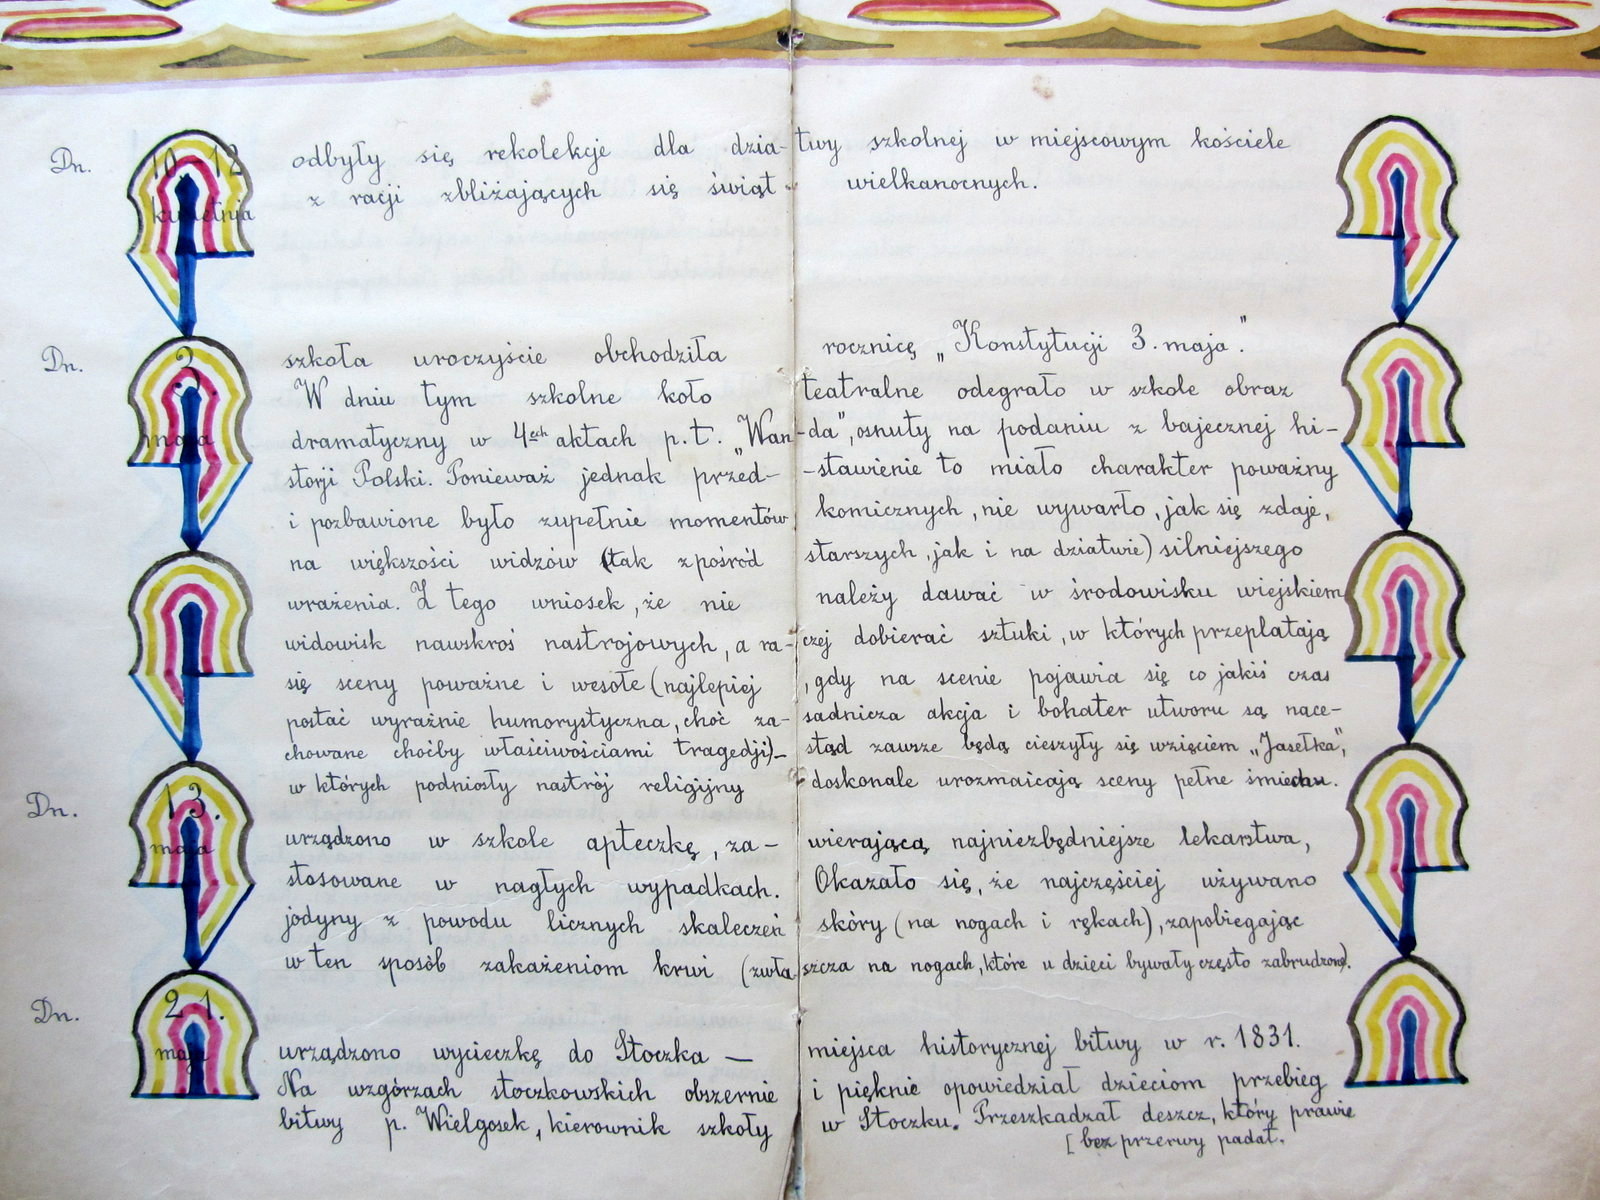 Dn. 10.-12 kwietnia odbyły się rekolekcje dla dzia-twy szkolnej w miejscowym kościele
z racji zbliżających się świąt wielkanocnych.
Dn. 3. maja szkoła uroczyście obchodziła rocznicę „Konstytucji 3. maja".
W dniu tym szkolne koło teatralne odegrało w szkole obraz
dramatyczny w 4ech aktach p.t. „Wan-da", osnuty na podaniu z bajecznej hi-
storji Polski. Ponieważ jednak przed-stawienie to miało charakter poważny
i pozbawione było zupełnie momentów komicznych, nie wywarło, jak się zdaje,
na większości widzów (tak z pośród starszych, jak i na dziatwie) silniejszego
wrażenia. Z tego wniosek, że nie należy dawać w środowisku wiejskiem
widowisk nawskroś nastrojowych, a ra-czej dobierać sztuki, w których przeplatają
się sceny poważne i wesołe (najlepiej, gdy na scenie pojawia się co jakiś czas
postać wyraźnie humorystyczna, choć za-sadnicza akcja i bohater utworu są nace-
chowane choćby właściwościami tragedji)- stąd zawsze będą cieszyły się wzięciem „Jasełka",
w których podniosły nastrój religijny doskonale urozmaicają sceny pełne śmiechu.
Dn. 13. maja urządzono w szkole apteczkę, za-wierającą najniezbędniejsze lekarstwa,
stosowane w nagłych wypadkach. Okazało się, że najczęściej używano
jodyny z powodu licznych skaleczeń skóry (na nogach i rękach), zapobiegając
w ten sposób zakażeniom krwi (zwła-szcza na nogach, które u dzieci bywały często zabrudzone).
Dn. 21. maja urządzono wycieczkę do Stoczka — miejsca historycznej bitwy w r. 1831.
Na wzgórzach stoczkowskich obszernie i pięknie opowiedział dzieciom przebieg
bitwy p. Wielgosek, kierownik szkoły w Stoczku. Przeszkadzał deszcz, który prawie
[bez przerwy padał.